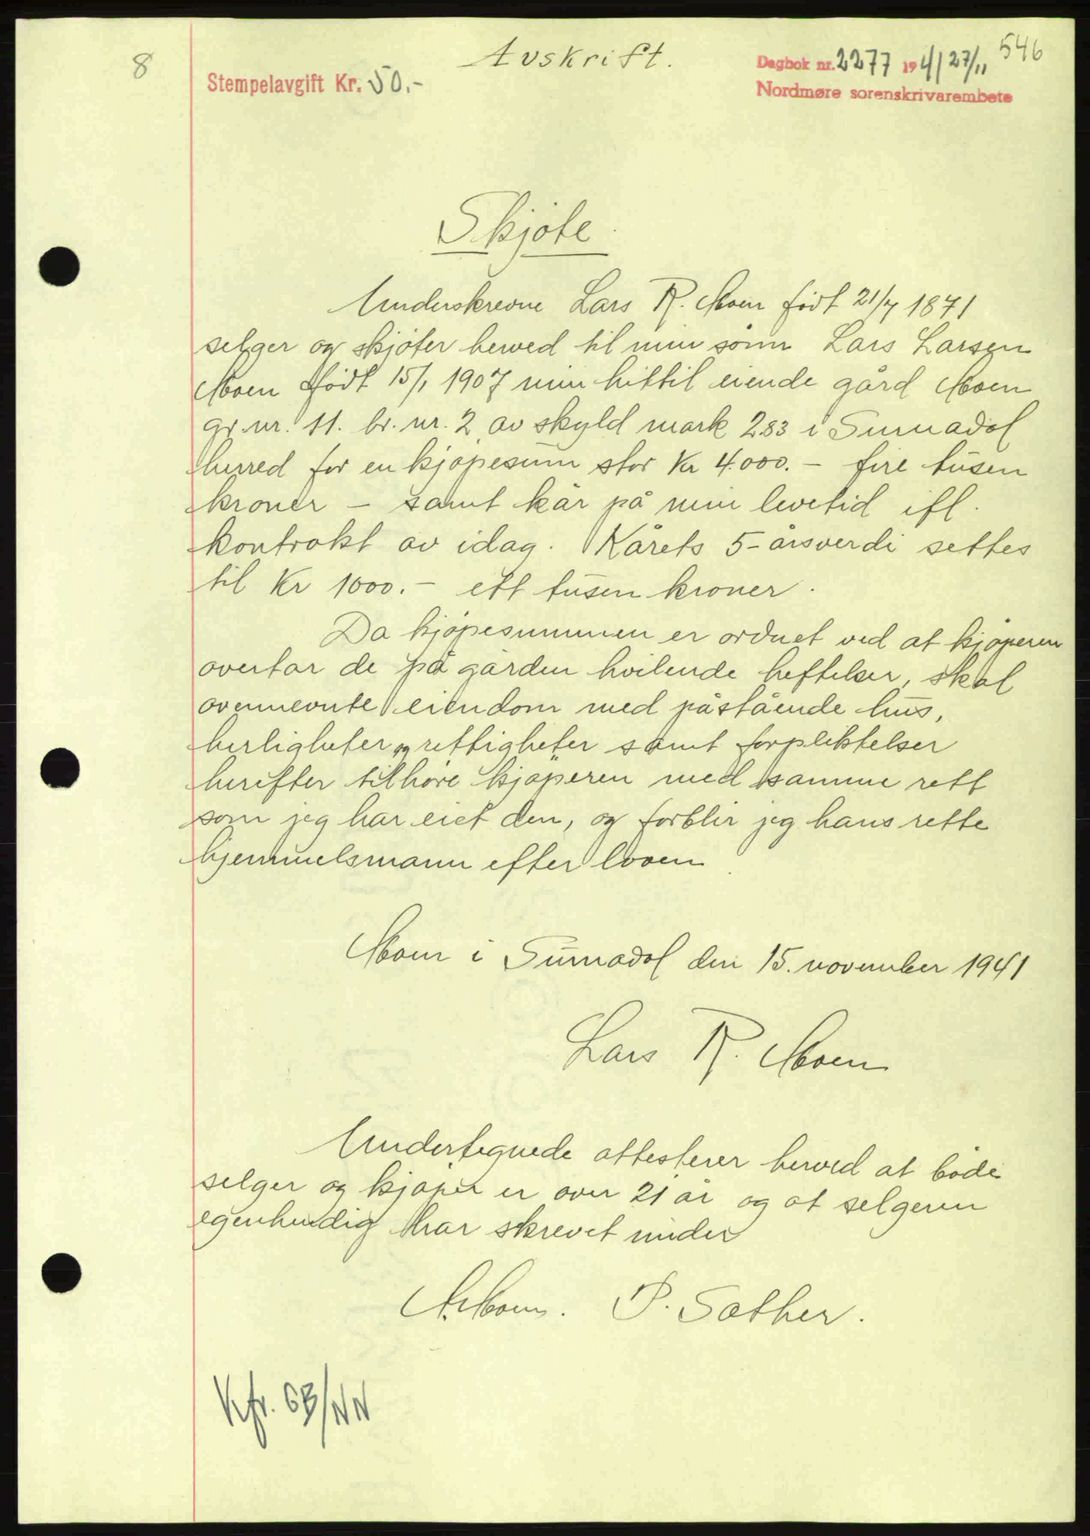 8
Avskrift.
546
Stempelavgift Kr. 50.-
Dagbok nr. 2277 1941 27/11
Nordmøre sorenskrivarembete
Skjøte
Underskrevne Lars R. Moen født 21/7 1871
selger og skjøter herved til min sønn Lars Larsen
Moen født 15/1 1907 min hittil eiende gård Moen
gr. nr. 11. br. nr. 2 av skyld mark 2.83 i Surnadal
herred for en kjøpesum stor Kr 4.000.- fire tusen
kroner - samt kår på min levetid ifl.
kontrakt av idag. Kårets 5-årsverdi settes
til Kr 1000.- ett tusen kroner.
Da kjøpesummen er ordnet ved at kjøperen
overtar de på gården hvilende heftelser, skal
ovennevnte eiendom med påstående hus,
herligheter og rettigheter samt forpliktelser
herefter tilhøre kjøperen med samme rett
som jeg har eiet den, og forblir jeg hans rette
hjemmelsmann efter loven.
Moen i Surnadal den 15. november 1941
Lars R. Moen
Undertegnede attesterer herved at både
selger og kjøper er over 21 år og at selgeren
egenhendig har skrevet under
A. Moen. P. Sæther.
Kfr. GB/NN